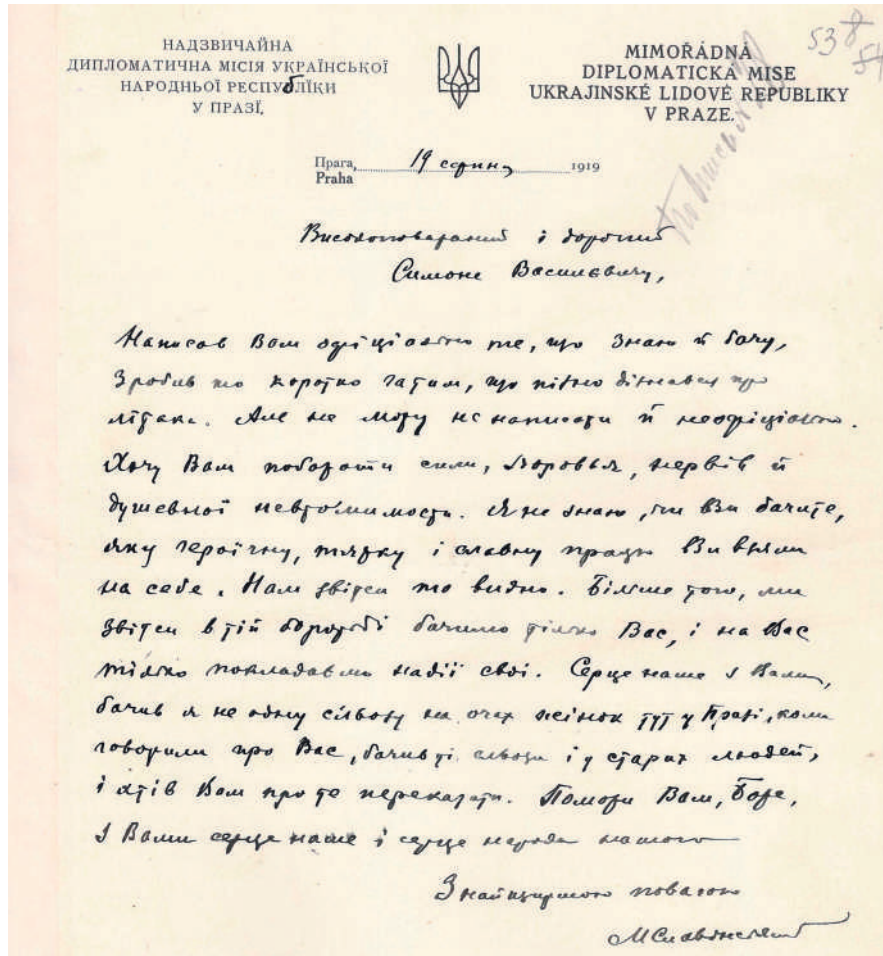 НАДЗВИЧАЙНА
ДИПЛОМАТИЧНА МІСІЯ УКРАЇНСЬКОЇ
НАРОДНЬОЇ РЕСПУБЛЇКИ
У ПРАЗЇ.
MIMOŘÁDNÁ
DIPLOMATICKÁ MISE
UKRAJINSKÉ LIDOVÉ REPUBLIKY
V PRAZE.
538
54
Прага, 19 серпня 1919
Praha
Високоповажаний і дорогий
Симоне Василєвичу,
Написав Вам офіціяльно те, що знаю й бачу,
Зробив то коротко затим, що пізно дізнався про
літак. Але не можу не написати й неофіціяльно.
Хочу Вам побажати сили, здоровья, нервів й
душевної невтомимости. Я не знаю, чи Ви бачите,
яку героїчну, тяжку і славну працю Ви взяли
на себе. Нам звітси то видно. Більше того, ми
звітси в тій боротьбі бачимо тілько Вас, і на Вас
тілько покладаємо надії свої. Серце наше з Вами,
бачив я не одну сльозу на очах жінок тут у Празі, коли
говорили про Вас, бачив ті сльози і у старих людей,
і хтів Вам про те переказати. Поможи Вам, Боже,
З Вами серце наше і серце народа нашого
З найщиршою повагою
МСлавінський